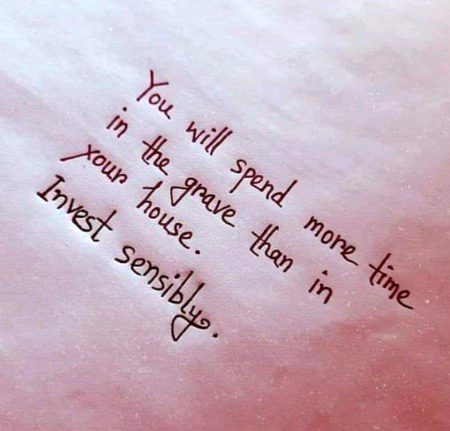 You will spend more time
in the grave than in
your house.
Invest sensibly.